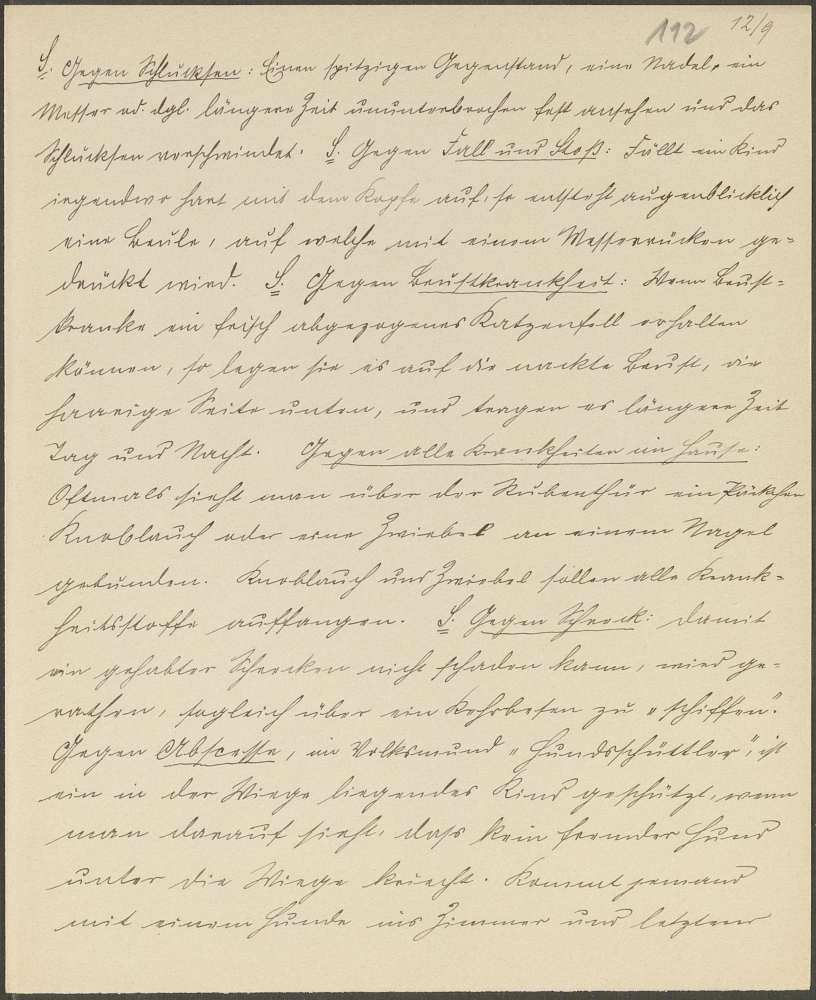 112 12/9
S. Gegen Schlucksen: Einen spitzigen Gegenstand, eine Nadel, ein
Messer od. dgl. längere Zeit ununterbrochen fest ansehen und das
Schlucksen verschwindet. S. Gegen Fall und Stoß: Fällt ein Kind
irgendwo hart mit dem Kopfe auf, so entsteht augenblicklich
eine Beule, auf welche mit einem Messerrücken ge-
drückt wird. S. Gegen Brustkrankheit: Wenn Brust-
kranke ein frisch abgezogenes Katzenfell erhalten
können, so legen sie es auf die nackte Brust, die
haarige Seite unten, und tragen es längere Zeit
Tag und Nacht. Gegen alle Krankheiten im Hause:
Oftmals sieht man über der Stubenthür ein Päckchen
Knoblauch oder eine Zwiebel an einem Nagel
gebunden. Knoblauch und Zwiebel sollen alle Krank-
heitsstoffe auffangen. S. Gegen Schreck: Damit
ein gehabter Schrecken nicht schaden kann, wird ge-
rathen, sogleich über ein Kehrbesen zu "schiffen".
Gegen Abscesse, im Volksmund "Hundsschüttler", ist
ein in der Wiege liegendes Kind geschützt, wenn
man darauf sieht, dass kein fremder Hund
unter die Wiege kriecht. Kommt jemand
mit einem Hunde ins Zimmer und letzterer